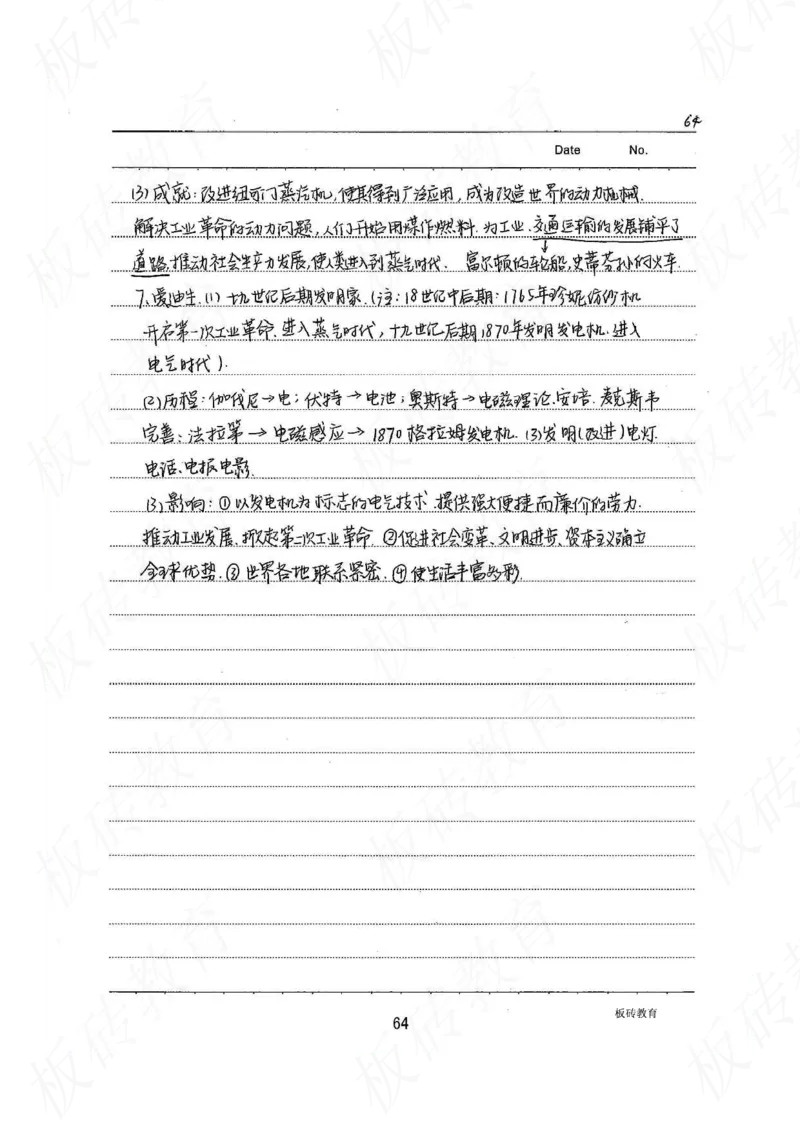 64
Date No.
(3)成就:改进纽可门蒸汽机,使其得到广泛应用,成为改造世界的动力机械.
解决工业革命的动力问题,人们开始用煤作燃料.为工业.交通运输的发展铺平了
道路.推动社会生产力发展,使人类进入到蒸气时代. 富尔顿的轮船,史蒂芬孙的火车.
7、爱迪生.(1)十九世纪后期发明家.(注:18世纪中后期:1765年珍妮纺纱机
开启第一次工业革命.进入蒸气时代,十九世纪后期1870年发明发电机.进入
电气时代).
(2)历程:伽伐尼→电;伏特→电池;奥斯特→电磁理论.安培.麦克斯韦
完善;法拉第→电磁感应→1870格拉姆发电机.(3)发明(改进)电灯.
电话、电报电影.
(3)影响:①以发电机为标志的电气技术.提供强大便捷而廉价的劳力.
推动工业发展、掀起第二次工业革命.②促进社会变革、文明进步、资本主义确立
全球优势.③世界各地联系紧密.④使生活丰富多彩.
64
板砖教育